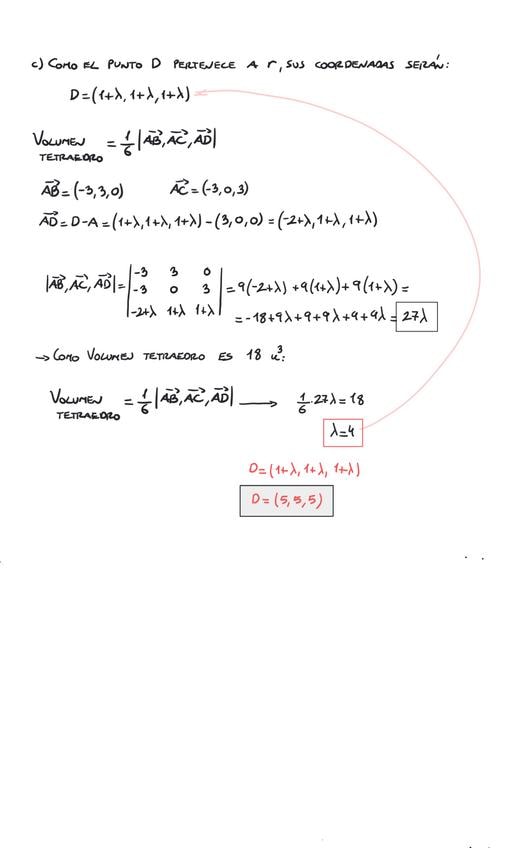 c) COMO EL PUNTO D PERTENECE A r, SUS COORDENADAS SERÁN:
D=(1+λ, 1+λ, 1+λ)
VOLUMEN TETRAEDRO = 1/6 |AB→, AC→, AD→|
AB→=(-3,3,0) AC→=(-3,0,3)
AD→=D-A=(1+λ,1+λ,1+λ)-(3,0,0)=(-2+λ,1+λ,1+λ)
|AB→, AC→, AD→|=
|-3 3 0|
|-3 0 3|
|-2+λ 1+λ 1+λ|
=9(-2+λ)+9(1+λ)+9(1+λ)=
=-18+9λ+9+9λ+9+9λ=27λ
→ COMO VOLUMEN TETRAEDRO ES 18 u³:
VOLUMEN TETRAEDRO = 1/6 |AB→, AC→, AD→| → 1/6·27λ=18
λ=4
D=(1+λ, 1+λ, 1+λ)
D=(5,5,5)